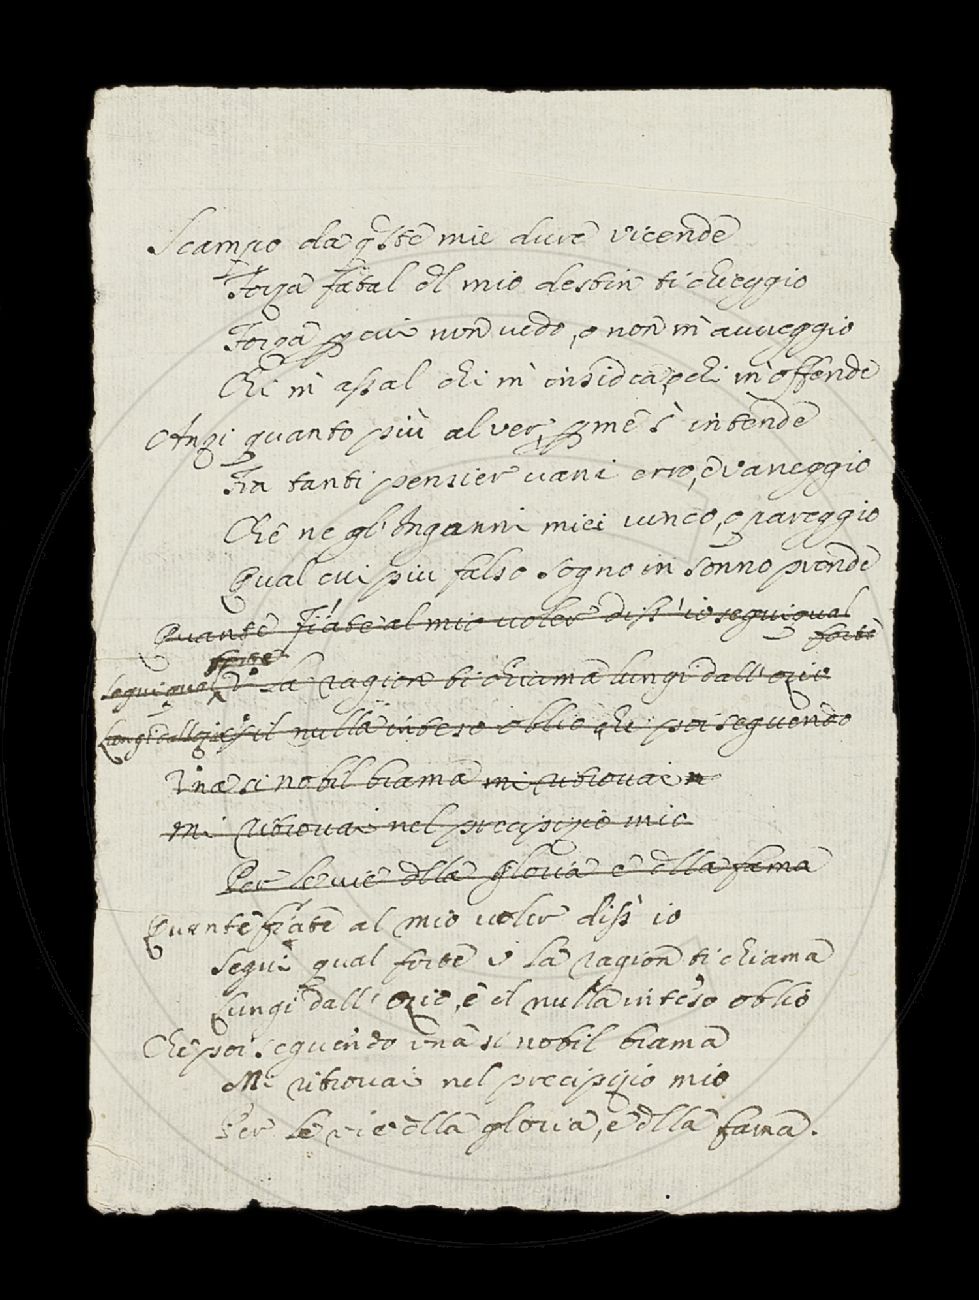 Scampo da q̃ste mie dure vicende
Forza fatal dl mio destin ti chieggio
Forza p cui non vedo, e non m' avveggio
Chi m' assal chi m' insidia, e chi m' offende
Anzi quanto più al ver, p me s' intende
Fra tanti pensier vani erro, e vaneggio
Che ne gl' Inganni miei vinco, e pareggio
Qual cui più falso sogno in sonno prende
Quante fiate al mio voler diss' io segui qual
forte
forte
segui qual V' La ragion ti chiama lungi dall' ozio
Lungi dall' e il nulla inteso oblio che poi seguendo
Vna si nobil brama mi ritrovai n
Mi ritrovai nel precipizio mio
Per le vie dlla gloria e dlla fama
Quante fiate al mio voler diss' io
Segui qual forte v' La ragion ti chiama
Lungi dall' ozio, e il nulla inteso oblio
Che poi seguendo vna si nobil brama
Mi ritrovai nel precipizio mio
Per le vie dlla gloria, e dlla fama.